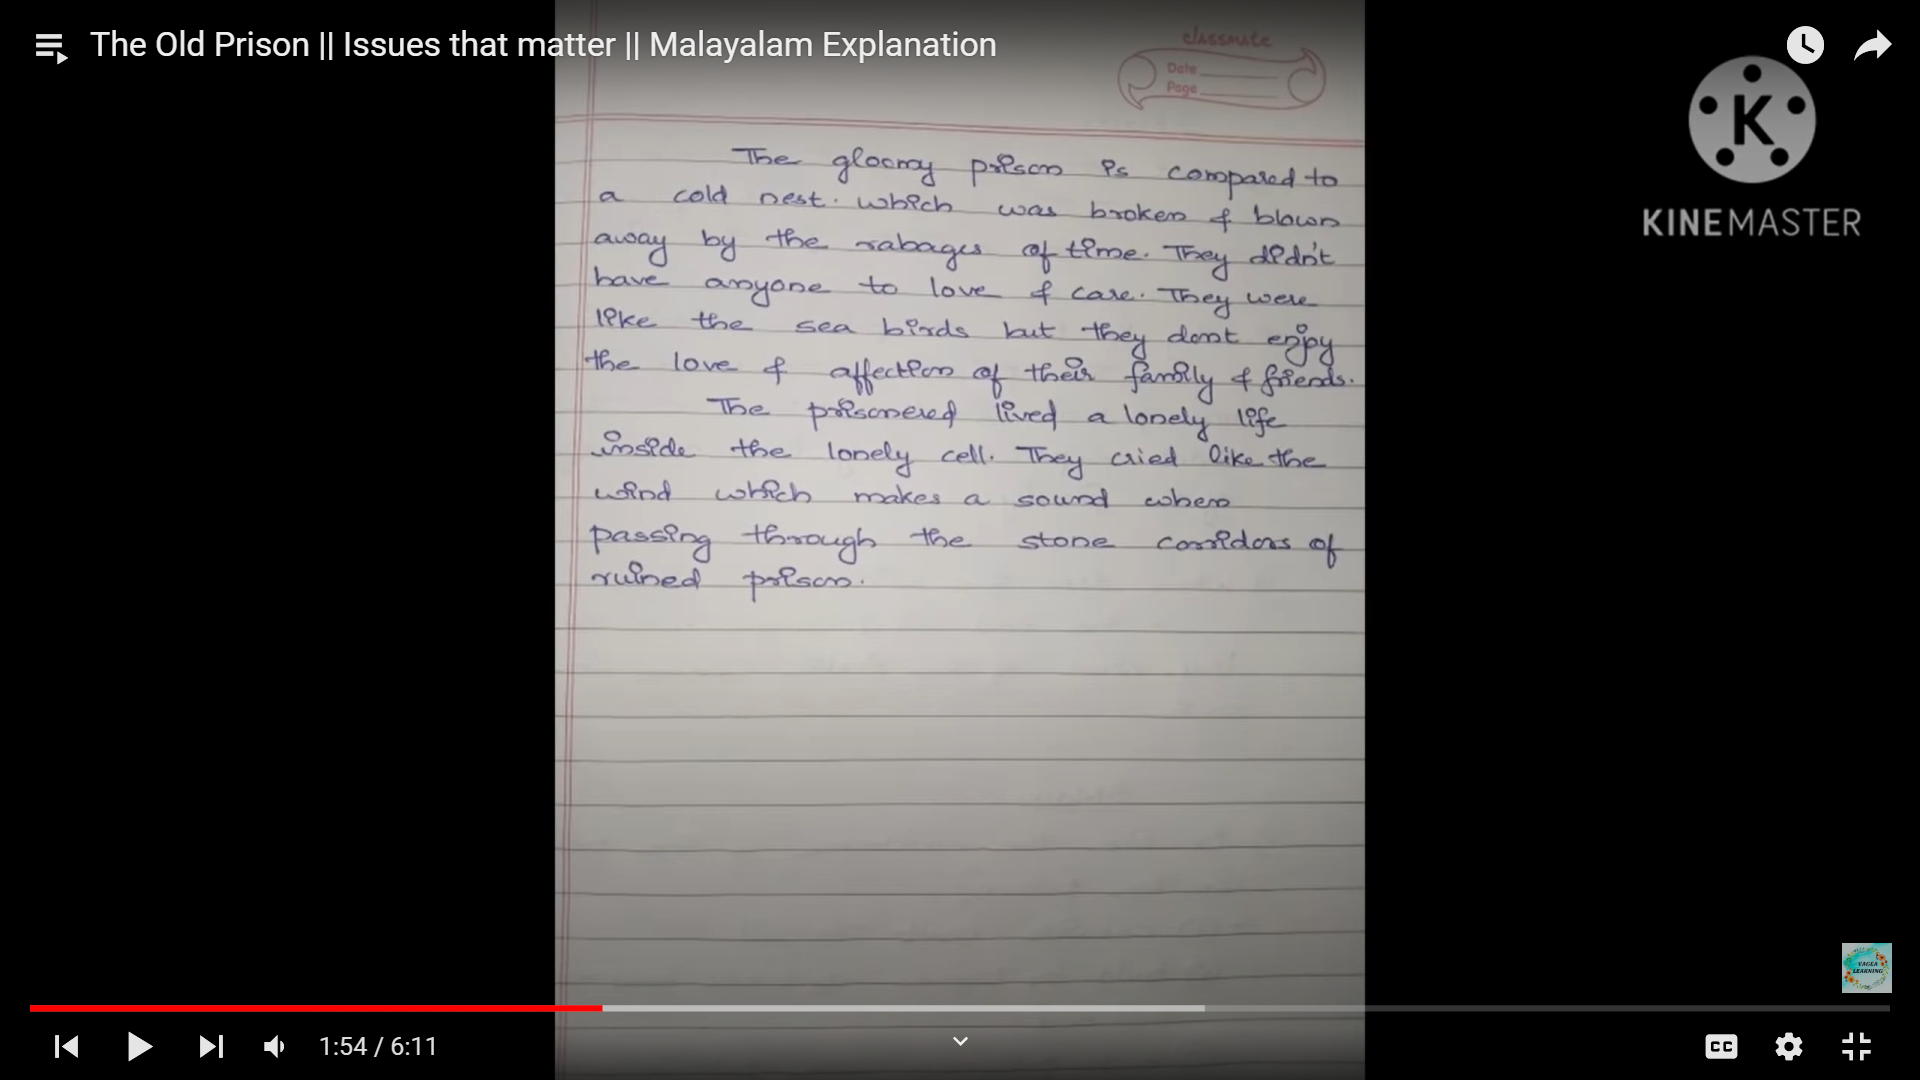 The Old Prison || Issues that matter || Malayalam Explanation
classmate
Date
Page
K
KINEMASTER
The gloomy prison is compared to
a cold nest. which was broken & blown
away by the rabages of time. They didn't
have anyone to love & care. They were
like the sea birds but they dont enjoy
the love & affection of their family & friends.
The prisonered lived a lonely life
inside the lonely cell. They cried like the
wind which makes a sound when
passing through the stone corridors of
ruined prison.
VAGEA
LEARNING
1:54 / 6:11
CC